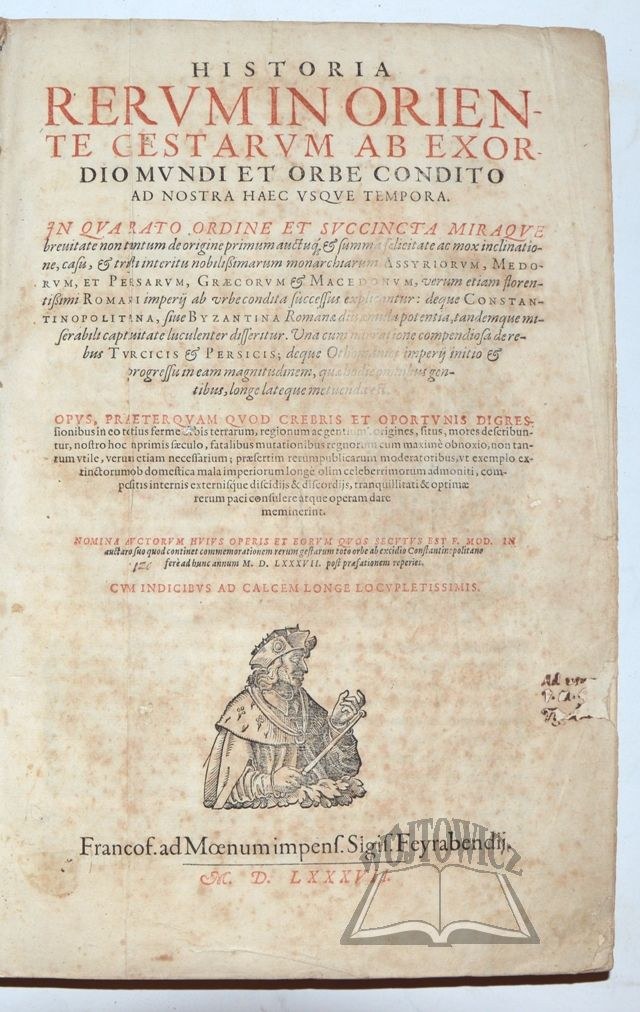 HISTORIA
RERVM IN ORIEN-
TE GESTARVM AB EXOR-
DIO MVNDI ET ORBE CONDITO
AD NOSTRA HAEC VSQVE TEMPORA.
IN QVA RATO ORDINE ET SVCCINCTA MIRAQVE
breuitate non tantum de origine primum auctuq́, & summa felicitate ac mox inclinatio-
ne, casu, & tristi interitu nobilißimarum monarchiarum ASSYRIORVM, MEDO-
RVM, ET PERSARVM, GRÆCORVM & MACEDONVM, verum etiam floren-
tißimi ROMANI imperij ab vrbe condita successus explicantur: deque CONSTAN-
TINOPOLITANA, siue BYZANTINA Romanæ potentia, tandemque mi-
serabili captiuitate luculenter disseritur. Vna cum narratione compendiosa de re-
bus TVRCICIS & PERSICIS, deque imperij initio &
progressu in eam magnitudinem, quæ hodie gen-
tibus, longe lateque metuenda est.
OPVS, PRAETERQVAM QVOD CREBRIS ET OPORTVNIS DIGRES-
sionibus in eo totius ferme orbis terrarum, regionum ac gentium origines, situs, mores describun-
tur, nostro hoc inprimis sæculo, fatalibus mutationibus regnorum cum maximè obnoxio, non tan-
tum vtile, verum etiam necessarium; præsertim rerumpublicarum moderatoribus, vt exemplo ex-
tinctorum ob domestica mala imperiorum longè olim celeberrimorum admoniti, com-
positis internis externisque discidijs & discordijs, tranquillitati & optimæ
rerum paci consulere atque operam dare
meminerint.
NOMINA AVCTORVM HVIVS OPERIS ET EORVM QVOS SECVTVS EST F. MOD. IN
auctario suo quod continet commemorationem rerum gestarum toto orbe ab excidio Constantinopolitano
ferè ad hunc annum M. D. LXXXVII. post præfationem reperies.
CVM INDICIBVS AD CALCEM LONGE LOCVPLETISSIMIS.
Francof. ad Mœnum impens. Sigis. Feyrabendij.
M. D. LXXXVII.
WOJTOWICZ